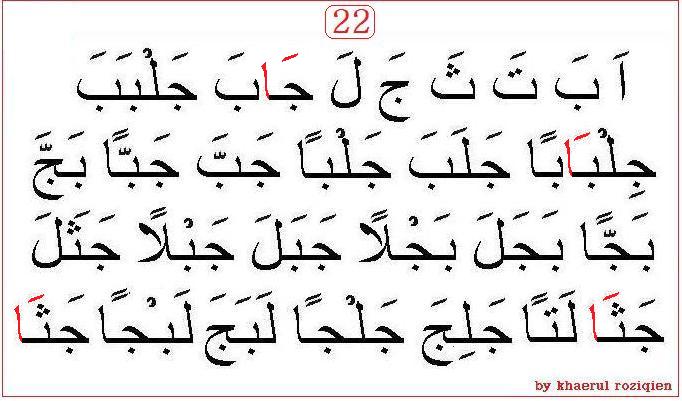 22
اَ بَ تَ ثَ جَ لَ جَابَ جَلْبَبَ
جِلْبَابًا جَلَبَ جَلْبًا جَبَّ جَبًّا بَجَّ
بَجًّا بَجَلَ بَجْلًا جَبَلَ جَبْلًا جَثَلَ
جَثَا لَتًا جَلِجَ جَلْجًا لَبَجَ لَبْجًا جَثَا
by khaerul roziqien